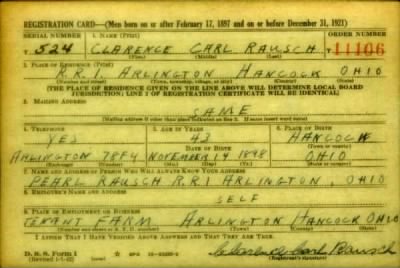 REGISTRATION CARD—(Men born on or after February 17, 1897 and on or before December 31, 1921)
SERIAL NUMBER 1. NAME (Print) ORDER NUMBER
T 524 CLARENCE CARL RAUSCH T 11106
(First) (Middle) (Last)
2. PLACE OF RESIDENCE (Print)
R.R.1. ARLINGTON HANCOCK OHIO
(Number and street) (Town, township, village, or city) (County) (State)
[THE PLACE OF RESIDENCE GIVEN ON THE LINE ABOVE WILL DETERMINE LOCAL BOARD
JURISDICTION; LINE 2 OF REGISTRATION CERTIFICATE WILL BE IDENTICAL]
3. MAILING ADDRESS
SAME
[Mailing address if other than place indicated on line 2. If same insert word same]
4. TELEPHONE 5. AGE IN YEARS 6. PLACE OF BIRTH
YES 43 HANCOCK
DATE OF BIRTH
ARLINGTON 78F4 NOVEMBER 14 1898 OHIO
7. NAME AND ADDRESS OF PERSON WHO WILL ALWAYS KNOW YOUR ADDRESS
PEARL RAUSCH R.R.1 ARLINGTON, OHIO
8. EMPLOYER'S NAME AND ADDRESS
SELF
9. PLACE OF EMPLOYMENT OR BUSINESS
TENANT FARM ARLINGTON HANCOCK OHIO
(Number and street or R. F. D. number) (Town) (County) (State)
I AFFIRM THAT I HAVE VERIFIED ABOVE ANSWERS AND THAT THEY ARE TRUE.
D. S. S. Form 1
(Revised 1-1-42) Clarence Carl Rausch
(Registrant's signature)